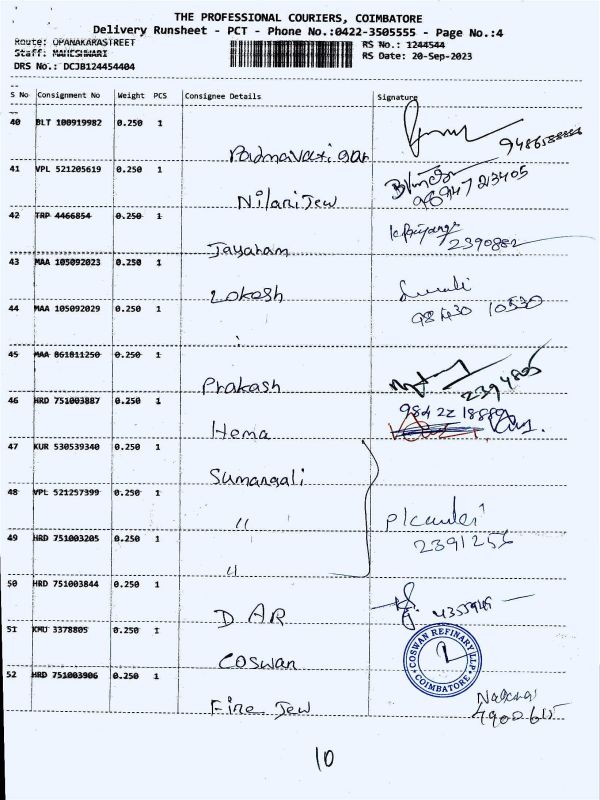 THE PROFESSIONAL COURIERS, COIMBATORE
Delivery Runsheet - PCT - Phone No.:0422-3505555 - Page No.:4
Route: OPANAKARASTREET
Staff: MAHESHWARI
RS No.: 1244544
DRS No.: DCJB124454404
RS Date: 20-Sep-2023
S No Consignment No Weight PCS Consignee Details Signature
40 BLT 100919982 0.250 1
Padmavati gar
41 VPL 521205619 0.250 1
Nilani Jew
98947 23405
42 TRP 4466854 0.250 1
2390882
Jayaram
43 MAA 105092023 0.250 1
Lokesh
98430 10530
44 MAA 105092029 0.250 1
45 MAA 861011250 0.250 1
Prakash
2394805
46 HRD 751003887 0.250 1
Hema
47 KUR 530539340 0.250 1
Sumangali
48 VPL 521257399 0.250 1
"         "
49 HRD 751003205 0.250 1
2391256
"
50 HRD 751003844 0.250 1
D AR
4355945
51 KMU 3378805 0.250 1
COSWAN REFINARY LLP
COIMBATORE
Coswan
52 HRD 751003906 0.250 1
Fine Jew
10